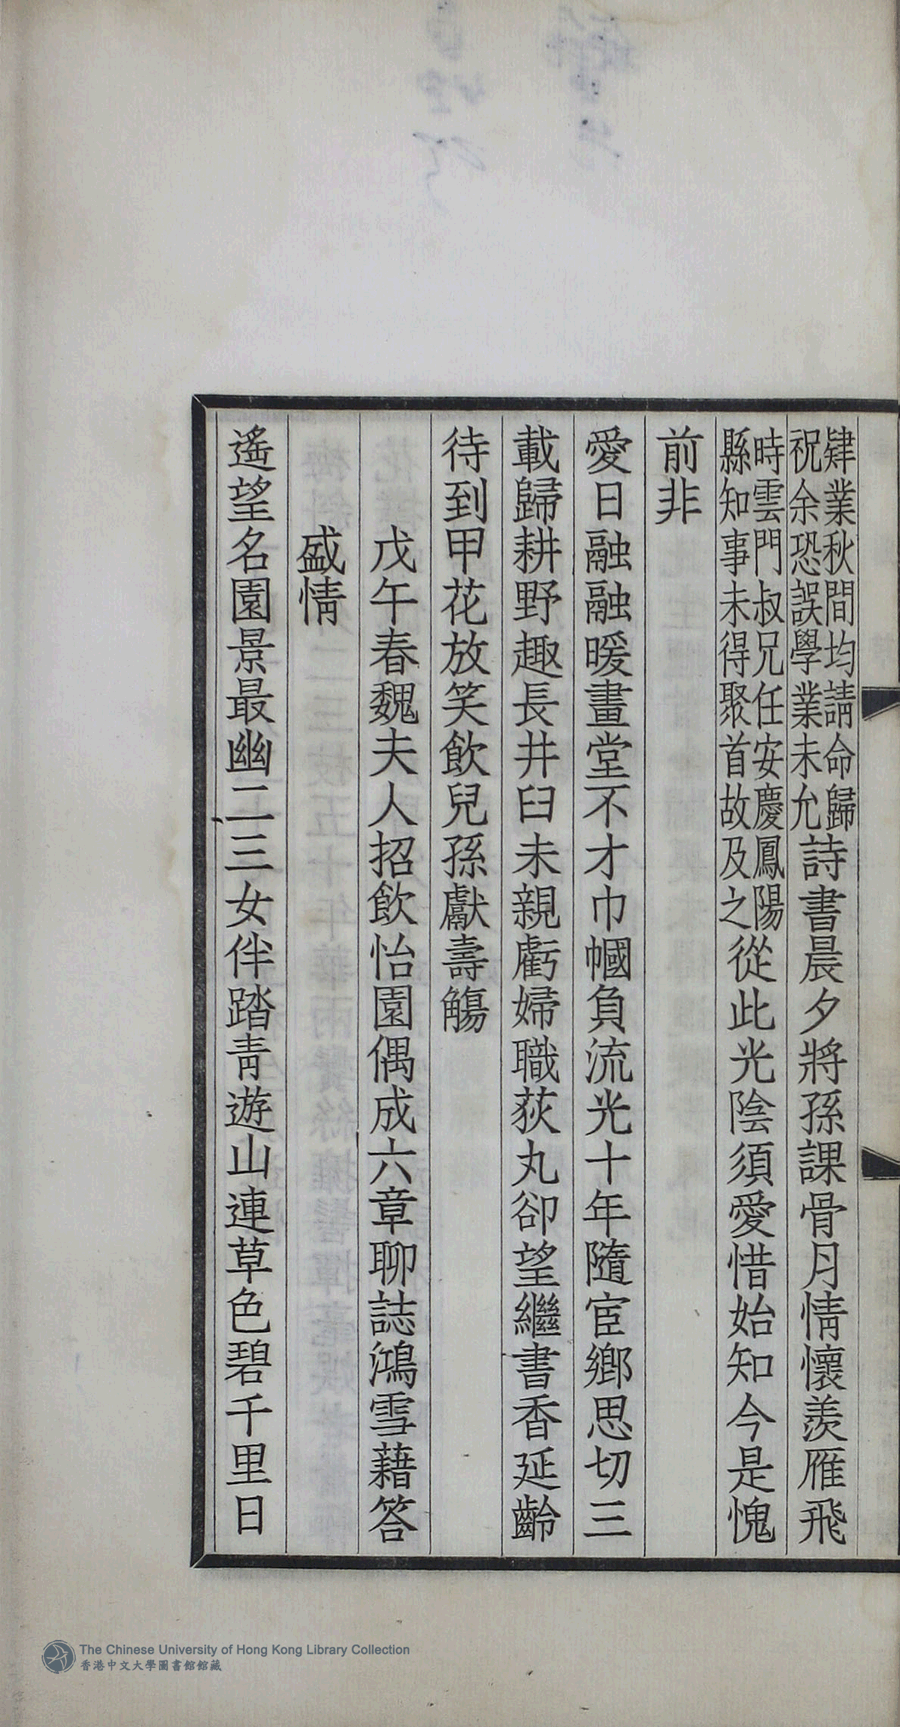 肄業秋間均請命歸
祝余恐誤學業未允詩書晨夕將孫課骨月情懷羨雁飛
時雲門叔兄任安慶鳳陽
縣知事未得聚首故及之從此光陰須愛惜始知今是愧
前非
愛日融融暖畫堂不才巾幗負流光十年隨宦鄉思切三
載歸耕野趣長井臼未親虧婦職荻丸卻望繼書香延齡
待到甲花放笑飲兒孫獻壽觴
戊午春魏夫人招飲怡園偶成六章聊誌鴻雪藉答
盛情
遙望名園景最幽二三女伴踏青遊山連草色碧千里日
The Chinese University of Hong Kong Library Collection
香港中文大學圖書館館藏